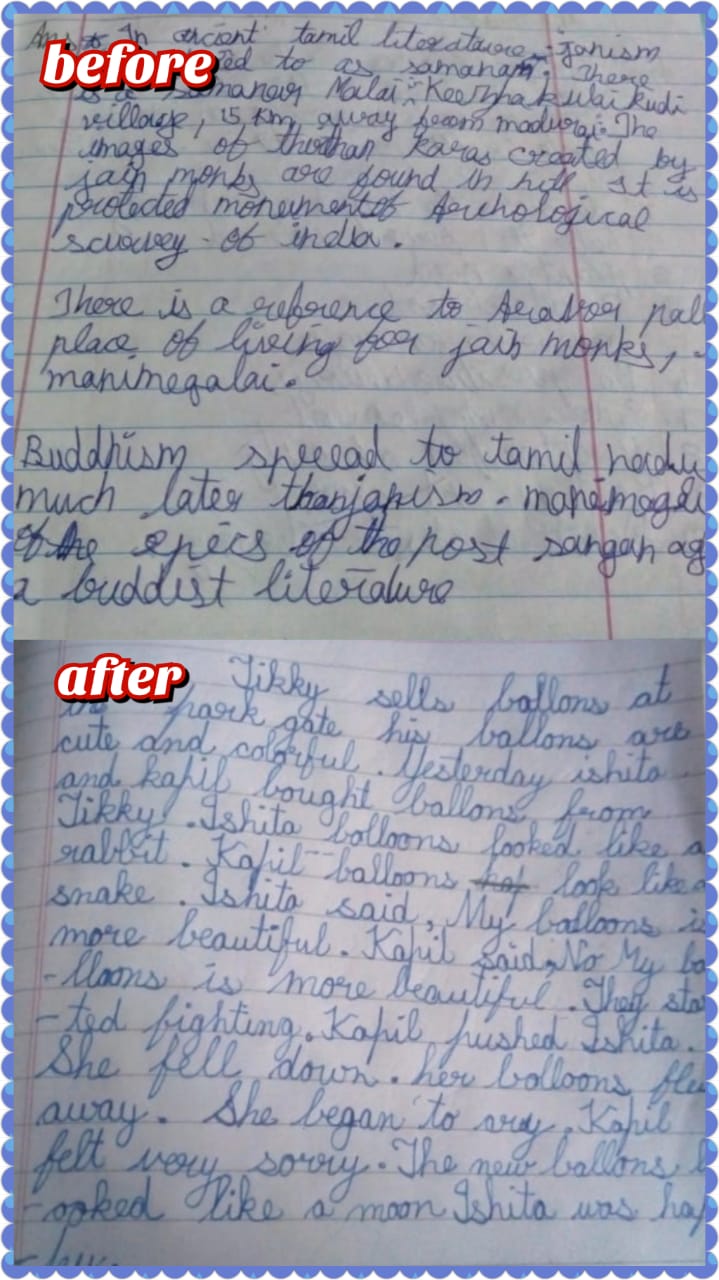 before
Ans In ancient tamil literataure, janism
ed to as samanam. There
is a samanar Malai, Keezhakulaikudi
village, 15 km away from madurai. The
images of thirthan karas created by
jain monks are found in hill It is
protected monument of Archological
scurvey of india.
There is a reference to Aravor pal
place of living for jain monks,
manimegalai.
Buddhism spread to tamil nadu
much later than janism. manimogal
of the epics of the post sangan ag
a buddist literature
after
Tikky sells ballons at
the park gate his ballons are
cute and colorful. Yesterday ishita
and kapil bought ballons from
Tikky. Ishita bolloons looked like a
rabbit. Kapil balloons look like a
snake. Ishita said, My balloons is
more beautiful. Kapil said, No My ba
-lloons is more beautiful. They sta
-ted fighting. Kapil pushed Ishita.
She fell down. her balloons fle
away. She began to cry. Kapil
felt very sorry. The new ballons l
-ooked like a moon Ishita was hap